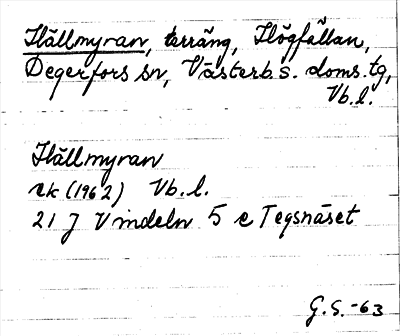 Hällmyran, terräng, Högfällan,
Degerfors sn, Västerb. s. doms. tg,
Vb. l.
Hällmyran
rk (1962) Vb. l.
21 J Vindeln 5 e Tegsnäset
G. S. -63